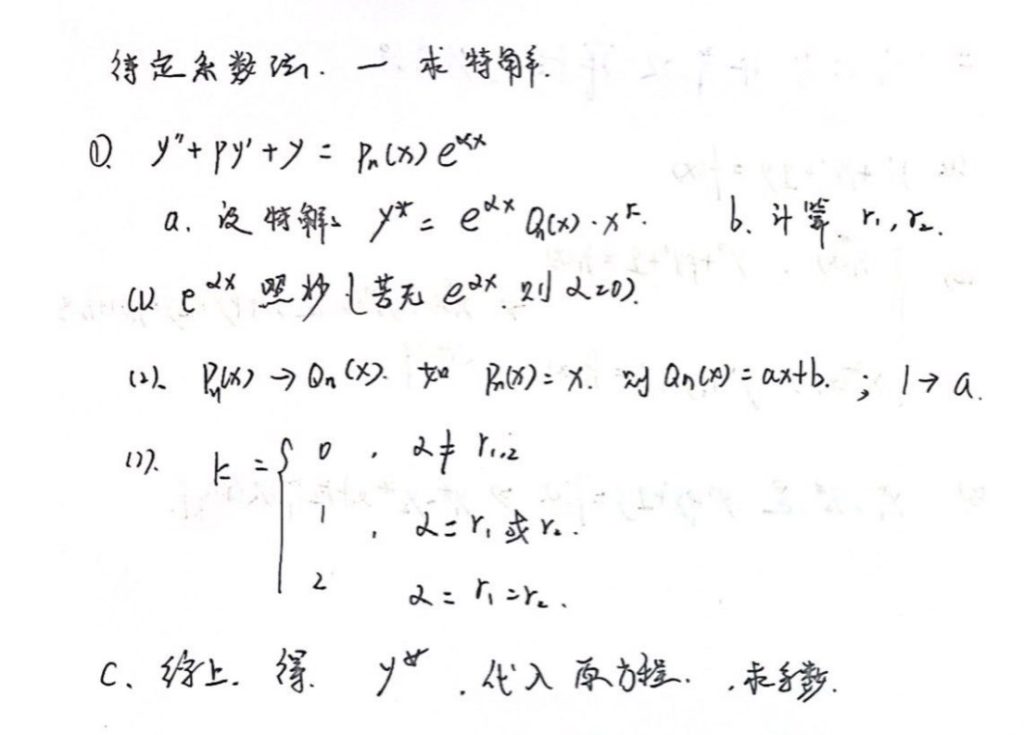 待定系数法. — 求特解.
①. y"+py'+y = Pn(x) e^αx
a. 设特解: y* = e^αx Qn(x)·x^k. b. 计算 r₁, r₂.
(1) e^αx 照抄 (若无 e^αx 则 α=0).
(2). Pn(x) → Qn(x). 如 Pn(x)=x. 则 Qn(x)=ax+b. ; 1→a.
(3). k = { 0 , α ≠ r₁,₂
1 , α = r₁ 或 r₂.
2 α = r₁ = r₂.
C、综上. 得. y* . 代入原方程. , 求系数.